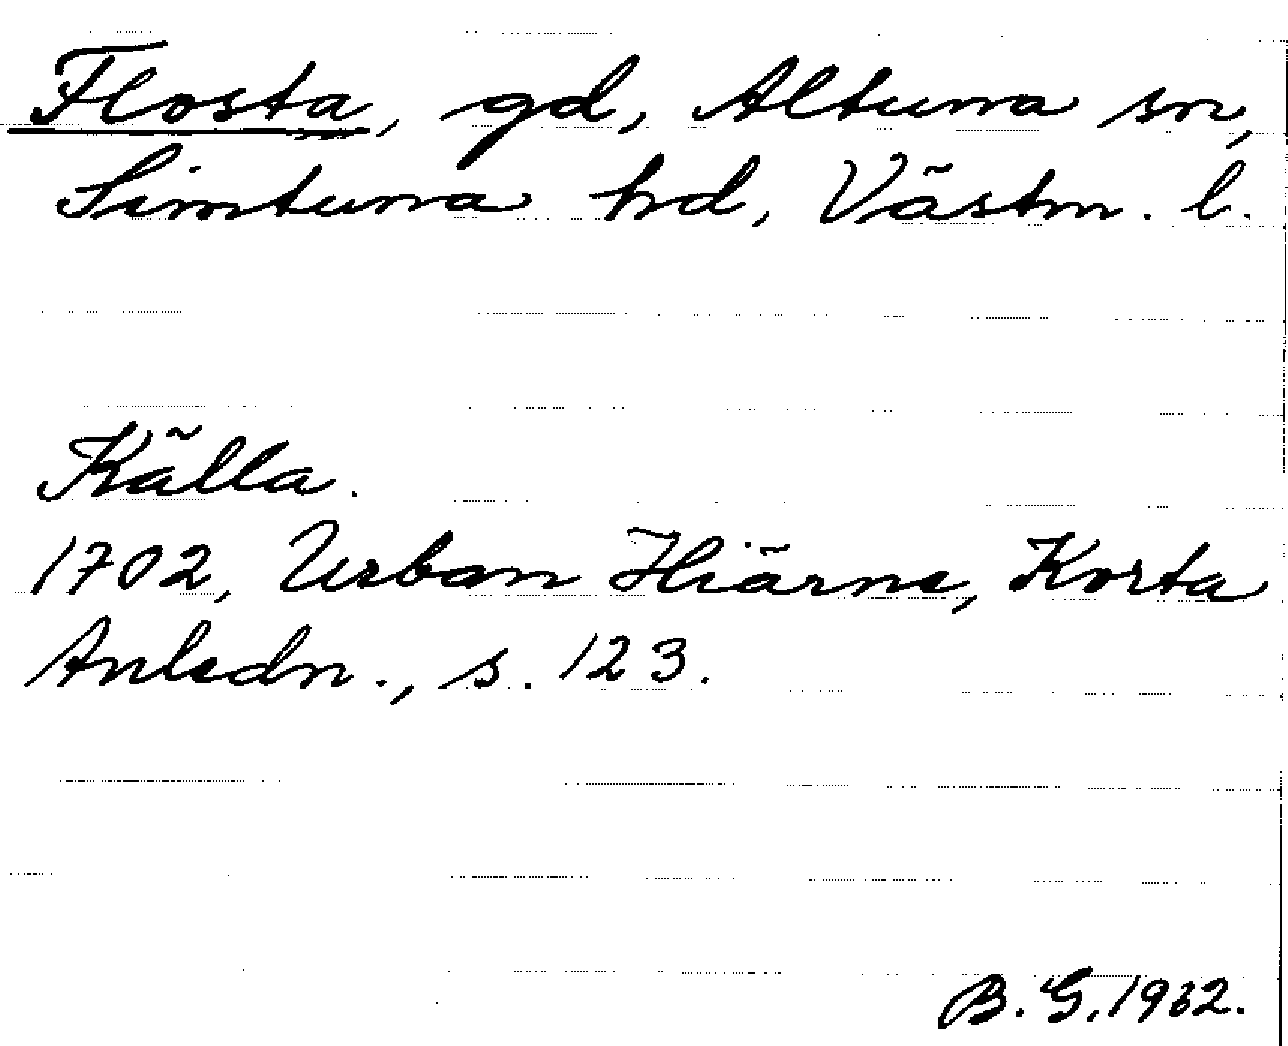 Flosta, gd, Altuna sn,
Simtuna hd, Västm. l.
Källa.
1702, Urban Hiärne, Korta
Anledn., s. 123.
B. G. 1932.